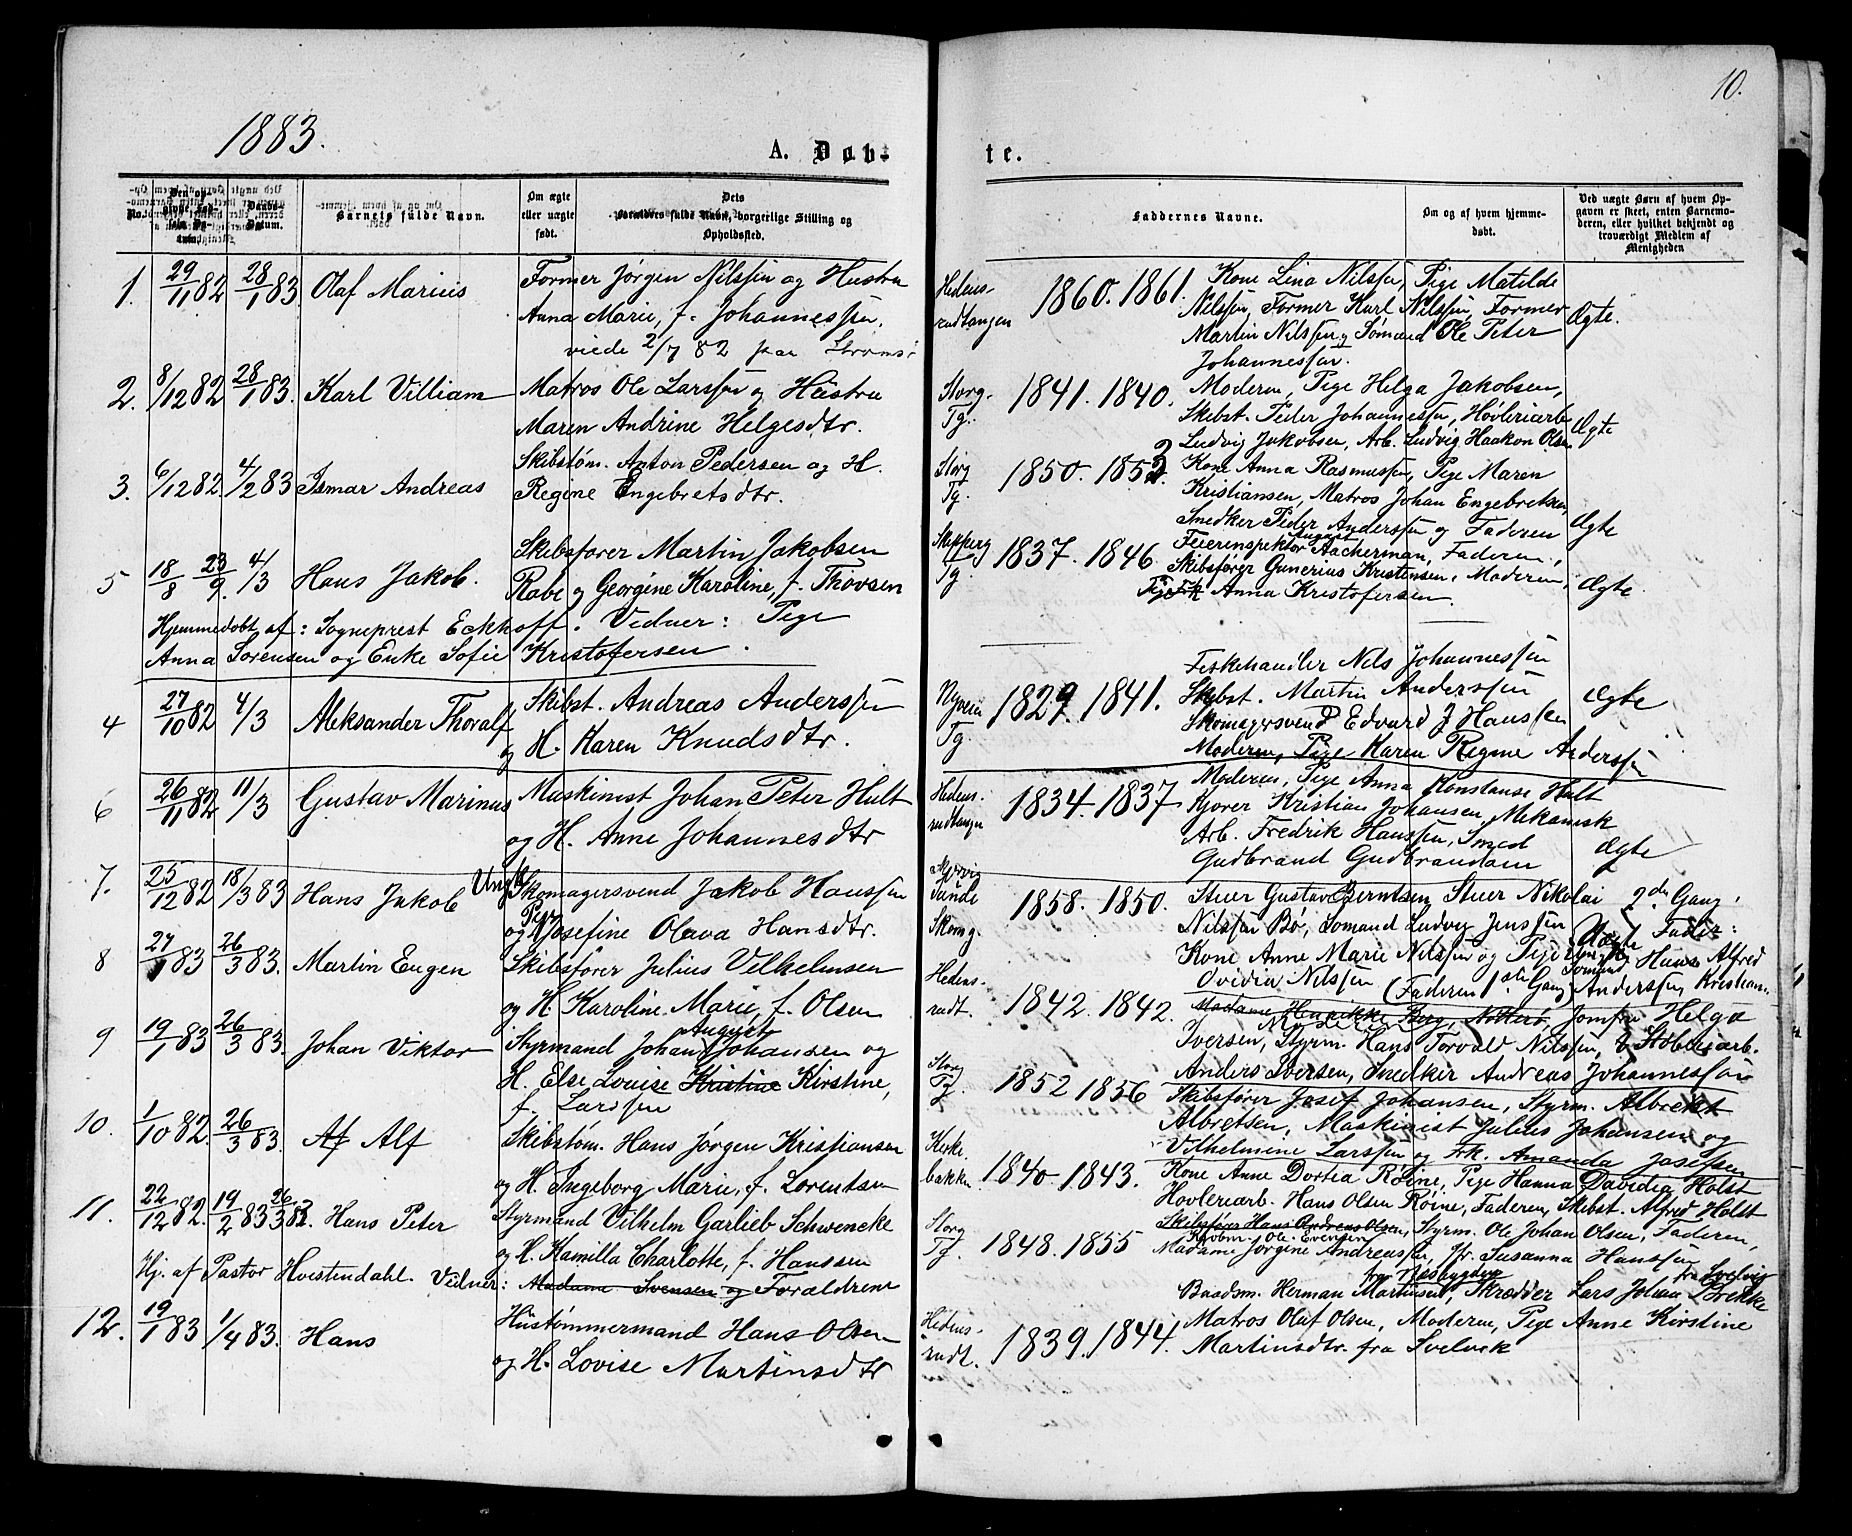 10.
1883.
A. Døb-
te.
No.
Døbs-
Datum.
Barnets fulde Navn.
Om ægte
eller uægte
født.
Dets
Forældres fulde Navn, borgerlige Stilling og
Opholdssted.
Faddernes Navne.
Om og af hvem hjemme-
døbt.
Ved uægte Børn af hvem Op-
gaven er skeet, enten Barnemo-
deren, eller hvilket bekjendt og
troværdigt Medlem af
Menigheden
1. 29/11 82 28/1 83 Olaf Marius
Former Jørgen Nilssen og Hustru
Anna Marie, f. Johannessen.
viede 2/7 82 paa Strømsø
Hedens-
rudtangen
1860. 1861.
Kone Lina Nilssen, Pige Matilde
Nilssen, Former Karl Nilssen, Former
Martin Nilssen og Sømand Ole Peter
Johannessen.
Ægte.
2. 8/12 82 28/1 83. Karl Villiam
Matros Ole Larssen og Hustru
Maren Andrine Helgesdtr.
Storg.
Tg.
1841. 1840.
Moderen, Pige Helga Jakobsen,
Skibst. Peder Johannessen, Høvleriarb.
Ludvig Jakobsen, Arb. Ludvig Haakon Olsen
Ægte
3. 6/12 82. 4/2 83 Ismar Andreas
Skibstøm. Anton Pedersen og H.
Regine Engebretsdtr.
Storg
Tg.
1850. 1852
Kone Anna Rasmussen, Pige Maren
Kristiansen, Matros Johan Engebretsen,
Snedker Peder Anderssen og Faderen
Ægte
5 18/8 23/9. 4/3 Hans Jakob.
Skibsfører Martin Jakobsen
Rabe og Georgine Karoline, f. Thovsen
Tg.
1837. 1846
Feierinspektør August Aacherman, Faderen,
Skibsfører Gunerius Kristensen, Moderen,
Anna Kristofersen.
Ægte.
Hjemmedøbt af: Sogneprest Eckhoff. Vidner: Pige
Anna Sørensen og Enke Sofie Kristofersen.
4 27/10 82 4/3 Aleksander Thoralf
Skibst. Andreas Anderssen
og H. Karen Knudsdtr.
Tg.
1829. 1841.
Fiskehandler Nils Johannessen
Skibst. Martin Anderssen
Skomagersvend Edvard J Hanssen
Moderen, Pige Karen Regine Anderssen
Ægte
6 26/11 82 11/3 Gustav Marinus
Maskinist Johan Peter Hult
og H. Anne Johannesdtr
Hedens-
rudtangen
1834. 1837
Moderen, Pige Anna Konstanse Hult
Kjører Kristian Johansen, Mekanisk
Arb. Fredrik Hanssen, Smed
Gudbrand Gudbrandsen
Ægte
7. 25/12 82 18/3 83 Hans Jakob
Skomagersvend Jakob Hanssen
og Pige Josefine Olava Hansdtr.
1858. 1850.
Stuer Gustav Berntsen Stuer Nikolai
Nilssen Bø, Sømand Ludvig Jenssen
Kone Anne Marie Nilssen og Pige
Ovidia Nilssen (Faderen 1ste Gang)
Uægte
2den Gang.
Fader:
Sømand Hans Alfred
Anderssen, Kristians.
8 27/1 83 26/3 83. Martin Eugen
Skibsfører Julius Vilhelmsen
og H. Karoline Marie, f. Olsen
Hedens-
rudt.
1842. 1842.
Madame Henrikke Berg, Nøtterø, Jomfru Helga
Iversen, Styrm. Hans Torvald Nilssen, Støberiarb.
Anders Iversen, Snedker Andreas Johannessen
9 19/1 83 26/3 83. Johan Viktor
Styrmand Johan August Johansen og
H. Else Louise Kristine Kirstine,
f. Larssen
Storg
Tg.
1852 1856
Skibsfører Josef Johansen, Styrm. Albrekt
Albretsen, Maskinist Julius Johansen og
Vilhelmine Larssen og Frk. Amanda Josefsen
10. 1/10 82. 26/3 83. Af Alf
Skibstøm. Hans Jørgen Kristiansen
og H. Ingeborg Marie, f. Lorentsen
Kirke-
bakken
1840. 1843.
Kone Anne Dortea Røine, Pige Hanna Davidia Holst
Høvleriarb. Hans Olsen Røine, Faderen, Skibst. Alfred Holst
11. 22/12 82. 19/2 83 26/3 83. Hans Peter
Styrmand Vilhelm Garlieb Schwencke
og H. Kamilla Charlotte, f. Hanssen
Storg
Tg.
1848. 1855
Skibsfører Hans Andreas Olsen, Styrm. Ole Johan Olsen, Faderen,
Kjøbm. Ole Evensen
Madame Jørgine Andreassen, Jfr. Susanna Hanssen
Hj. af Pastor Hvistendahl. Vidner: Madame Svensen og Forældrene
12. 19/1 83 1/4 83. Hans
Hustømmermand Hans Olsen
og H. Lovise Martinsdtr
Hedens-
rudt.
1839. 1844.
Baadsm. Herman Martinsen, fra Næsbygden Skrædder Lars Johan Brekke fra Svelvig
Matros Olaf Olsen, Moderen, Pige Anne Kirstine
Martinsdtr. fra Svelvik